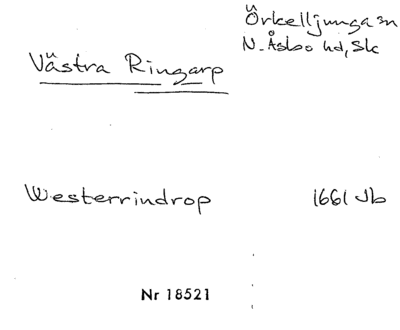 Örkelljunga sn
Västra Ringarp
N. Åsbo hd, Sk
Westerrindrop 1661 Jb
Nr 18521